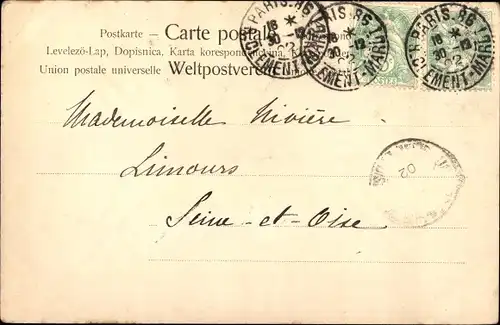 Postkarte - Carte postale
Levelező-Lap, Dopisnica, Karta korespondencyjna,
Union postale universelle Weltpostverein
PARIS.86
18 * 30 -12 02
CLÉMENT-MAROT
PARIS.86
18 * 30 -12 02
CLÉMENT-MAROT
PARIS.86
18 * 30 -12 02
CLÉMENT-MAROT
Mademoiselle Rivière
Limours
Seine-et-Oise
02